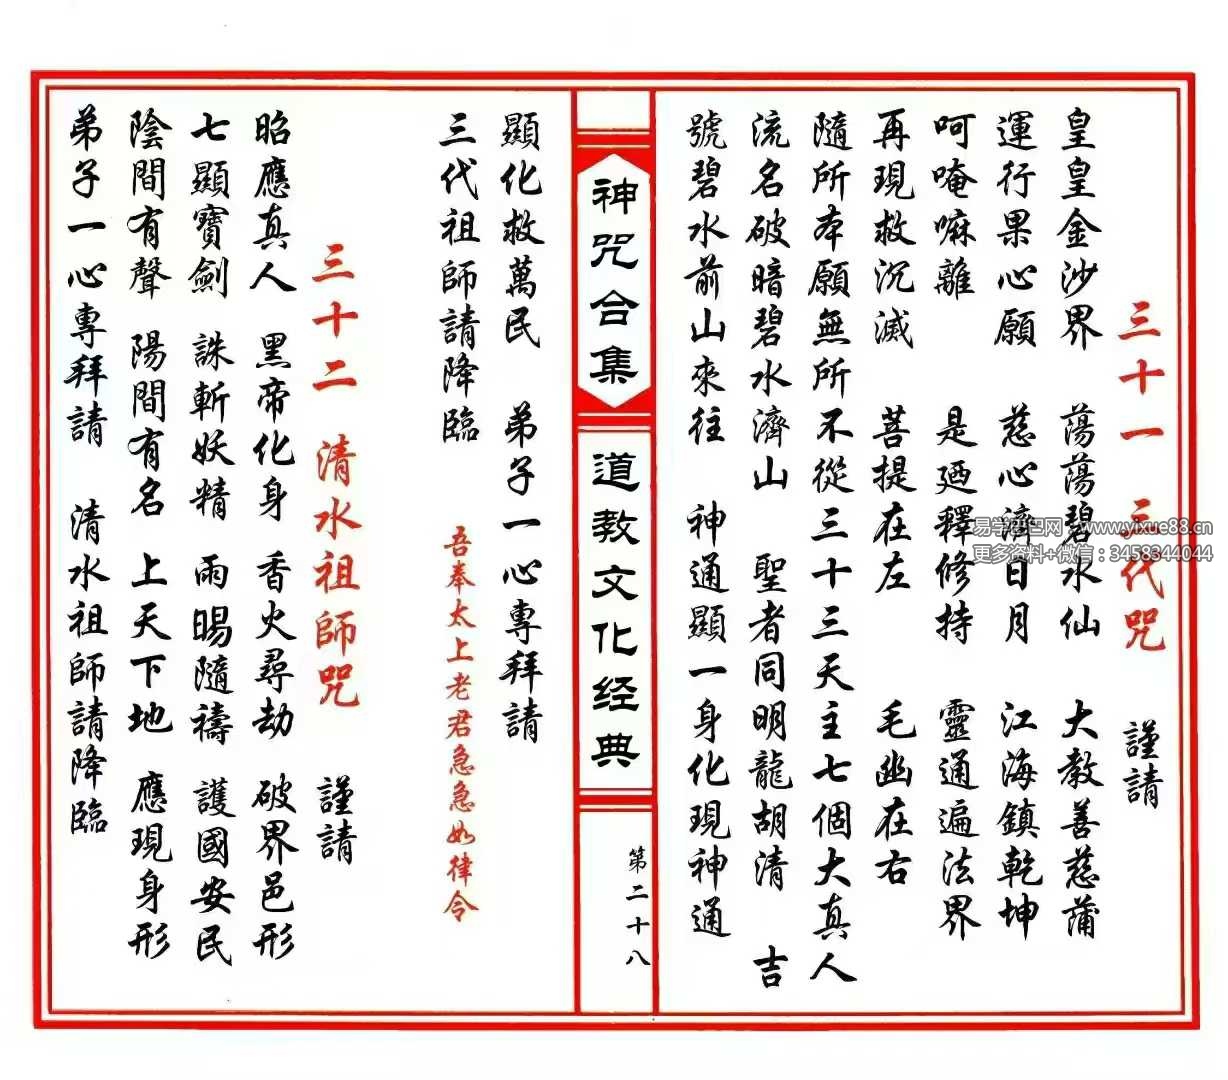 三十一 三代咒 謹請
皇皇金沙界 蕩蕩碧水仙 大教善慈蒲
運行果心願 慈心濟日月 江海鎮乾坤
呵唵嘛離 是廼釋修持 靈通遍法界
再現救沉滅 菩提在左 毛幽在右
隨所本願無所不從三十三天主七個大真人
流名破暗碧水濟山 聖者同明龍胡清 吉
號碧水前山來往 神通顯一身化現神通
神咒合集
道教文化经典
第二十八
顯化救萬民 弟子一心專拜請
三代祖師請降臨 吾奉太上老君急急如律令
三十二 清水祖師咒 謹請
昭應真人 黑帝化身 香火尋劫 破界邑形
七顯寶劍 誅斬妖精 雨賜隨禱 護國安民
陰間有聲 陽間有名 上天下地 應現身形
弟子一心專拜請 清水祖師請降臨
易学吧网 www.yixue88.cn
更多资料+微信：3458344044